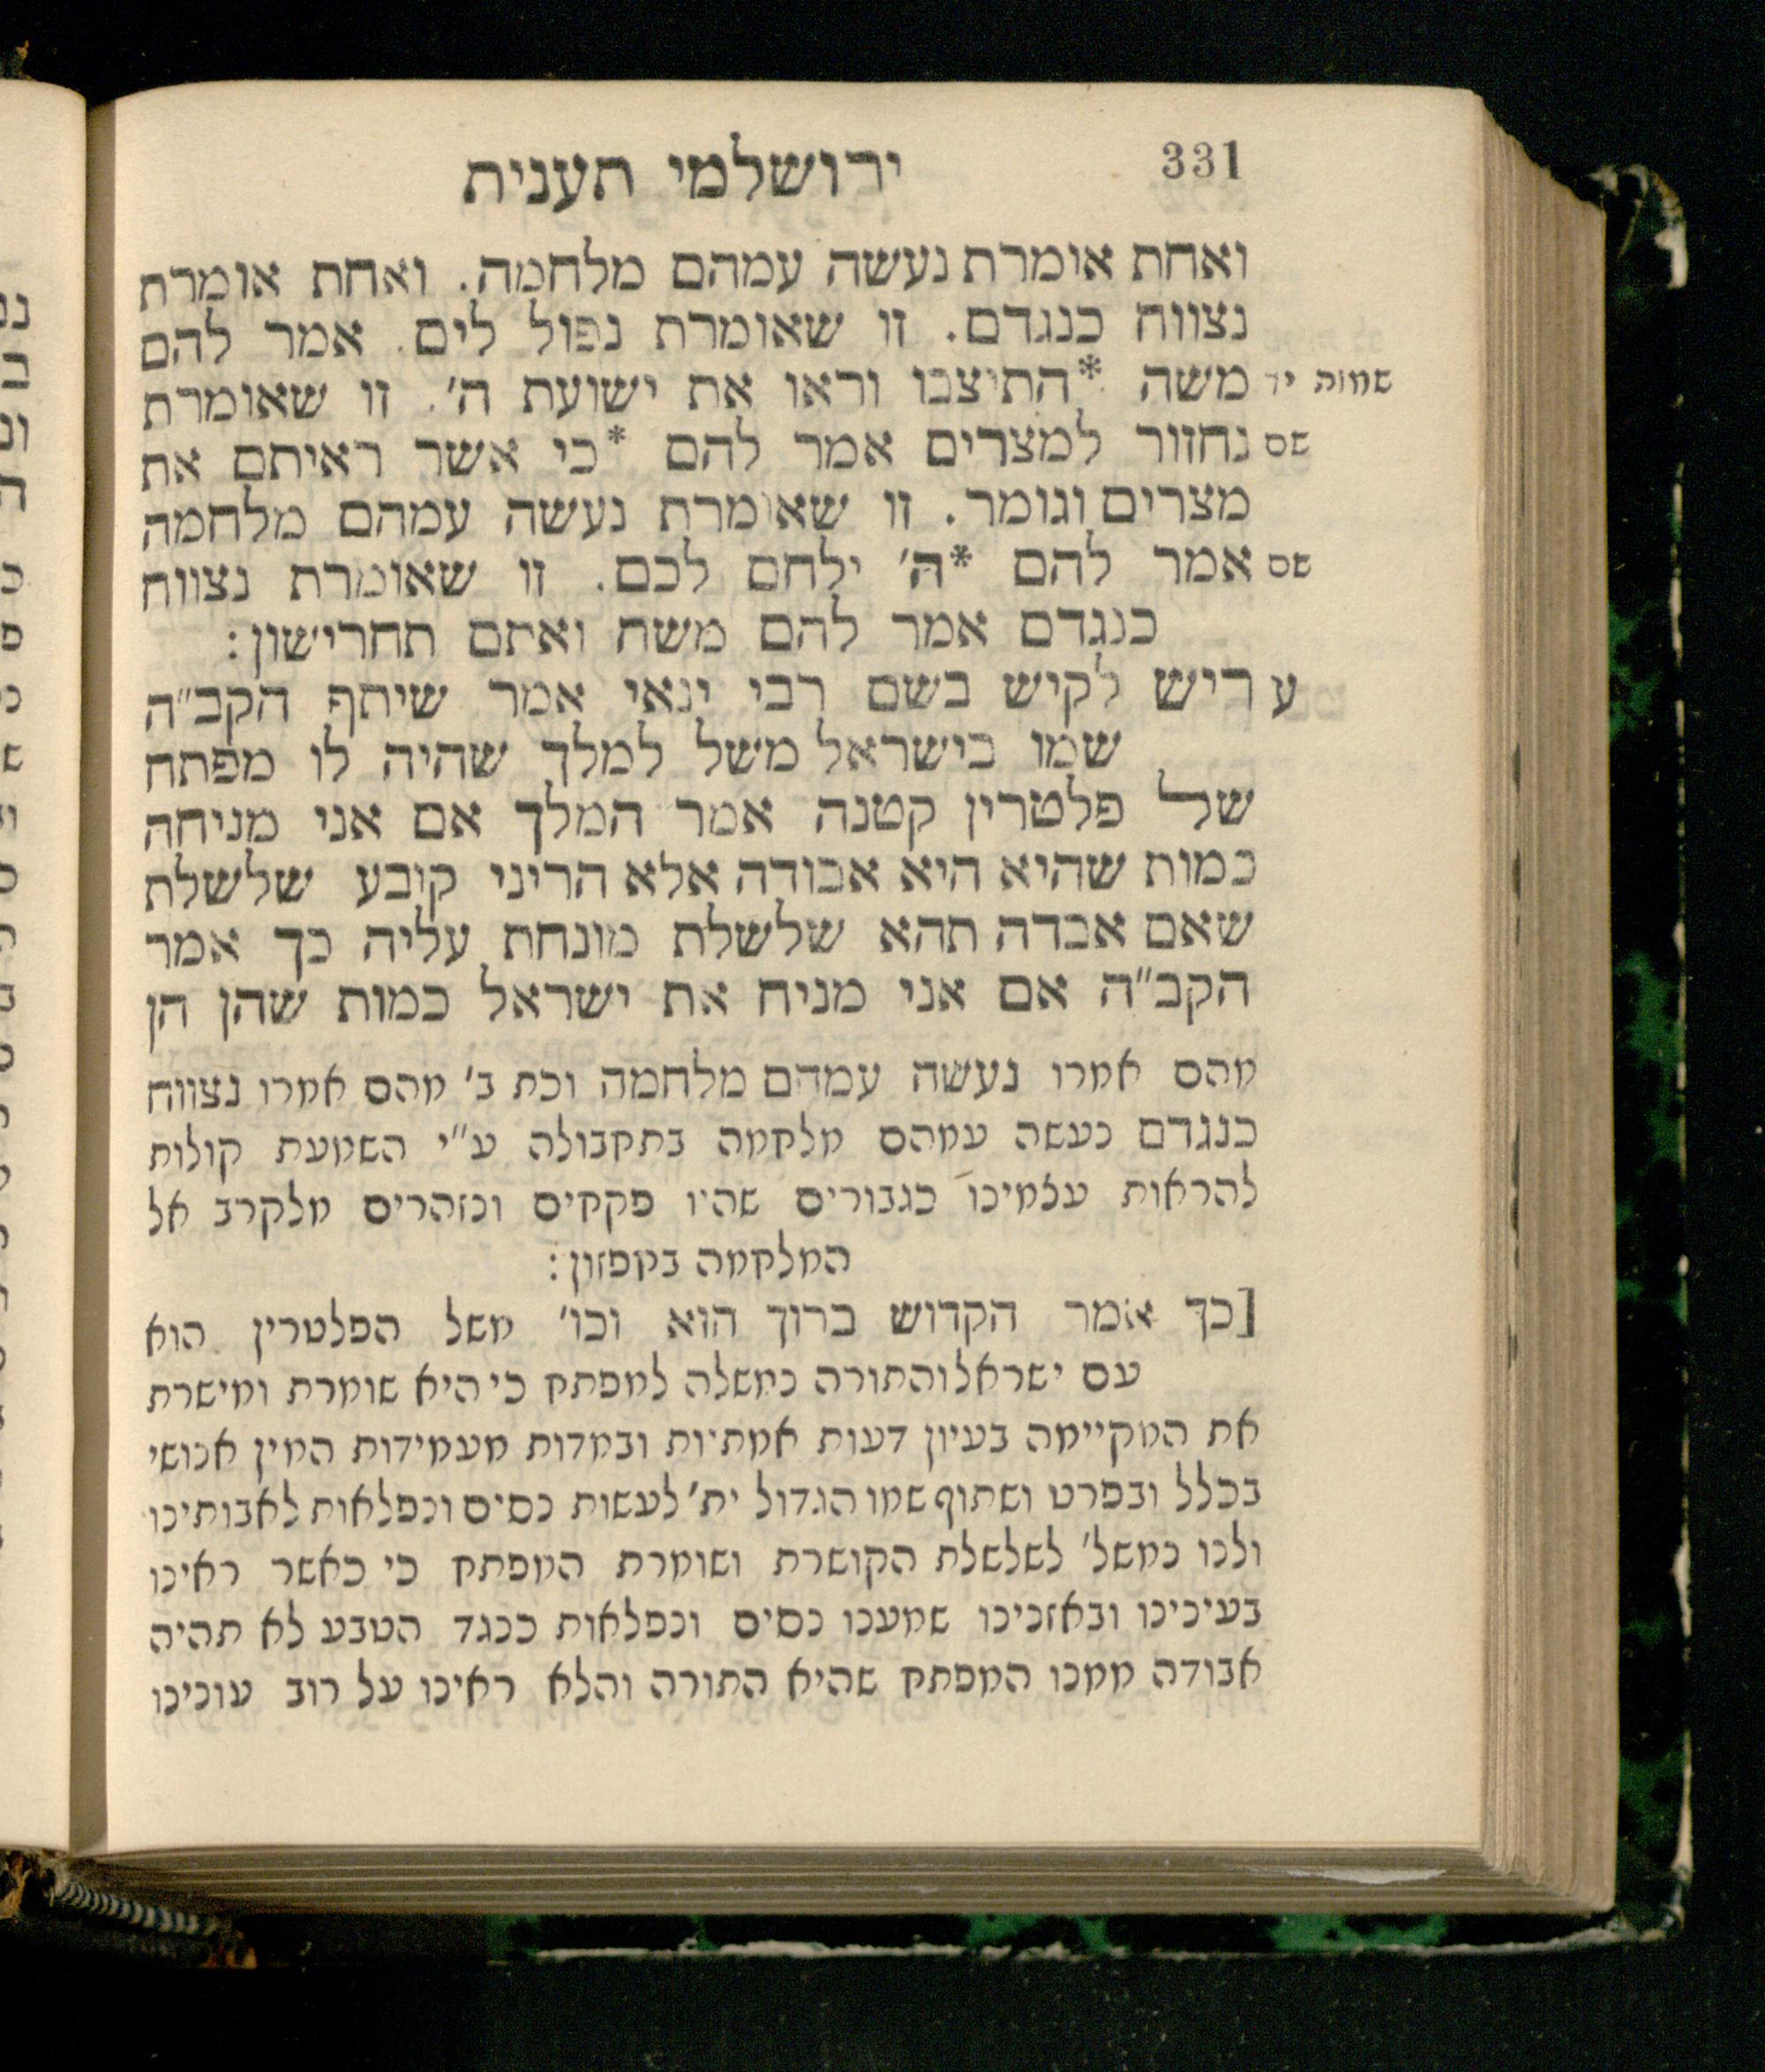 331 ירושלמי תענית
ואחת אומרת נעשה עמהם מלחמה. ואחת אומרת
נצווח כנגדם. זו שאומרת נפול לים. אמר להם
שמות יד משה *התיצבו וראו את ישועת ה'. זו שאומרת
שם נחזור למצרים אמר להם *כי אשר ראיתם את
מצרים וגומר. זו שאומרת נעשה עמהם מלחמה
שם אמר להם *ה' ילחם לכם. זו שאומרת נצווח
כנגדם אמר להם משה ואתם תחרישון:
ע ריש לקיש בשם רבי ינאי אמר שיתף הקב"ה
שמו בישראל משל למלך שהיה לו מפתח
של פלטרין קטנה אמר המלך אם אני מניחה
כמות שהיא היא אבודה אלא הריני קובע שלשלת
שאם אבדה תהא שלשלת מונחת עליה כך אמר
הקב"ה אם אני מניח את ישראל כמות שהן הן
מהם אמרו נעשה עמהם מלחמה וכת ב' מהם אמרו נצווח
כנגדם נעשה עמהם מלחמה בתחבולה ע"י השמעת קולות
להראות עצמינו כגבורים שהיו פחדים ונזהרים מלקרב אל
המלחמה בחפזון:
[כך אמר הקדוש ברוך הוא וכו' משל הפלטרין הוא
עם ישראל והתורה נמשלה למפתח כי היא שומרת ומישרת
את המקיימה בעיון דעות אמתיות ובמדות מעמידות המין אנושי
בכלל ובפרט ושתוף שמו הגדול ית' לעשות נסים ונפלאות לאבותינו
ולנו נמשל' לשלשלת הקושרת ושומרת המפתח כי כאשר ראינו
בעינינו ובאזנינו שמענו נסים ונפלאות כנגד הטבע לא תהיה
אבודה ממנו המפתח שהיא התורה והלא ראינו על רוב עונינו